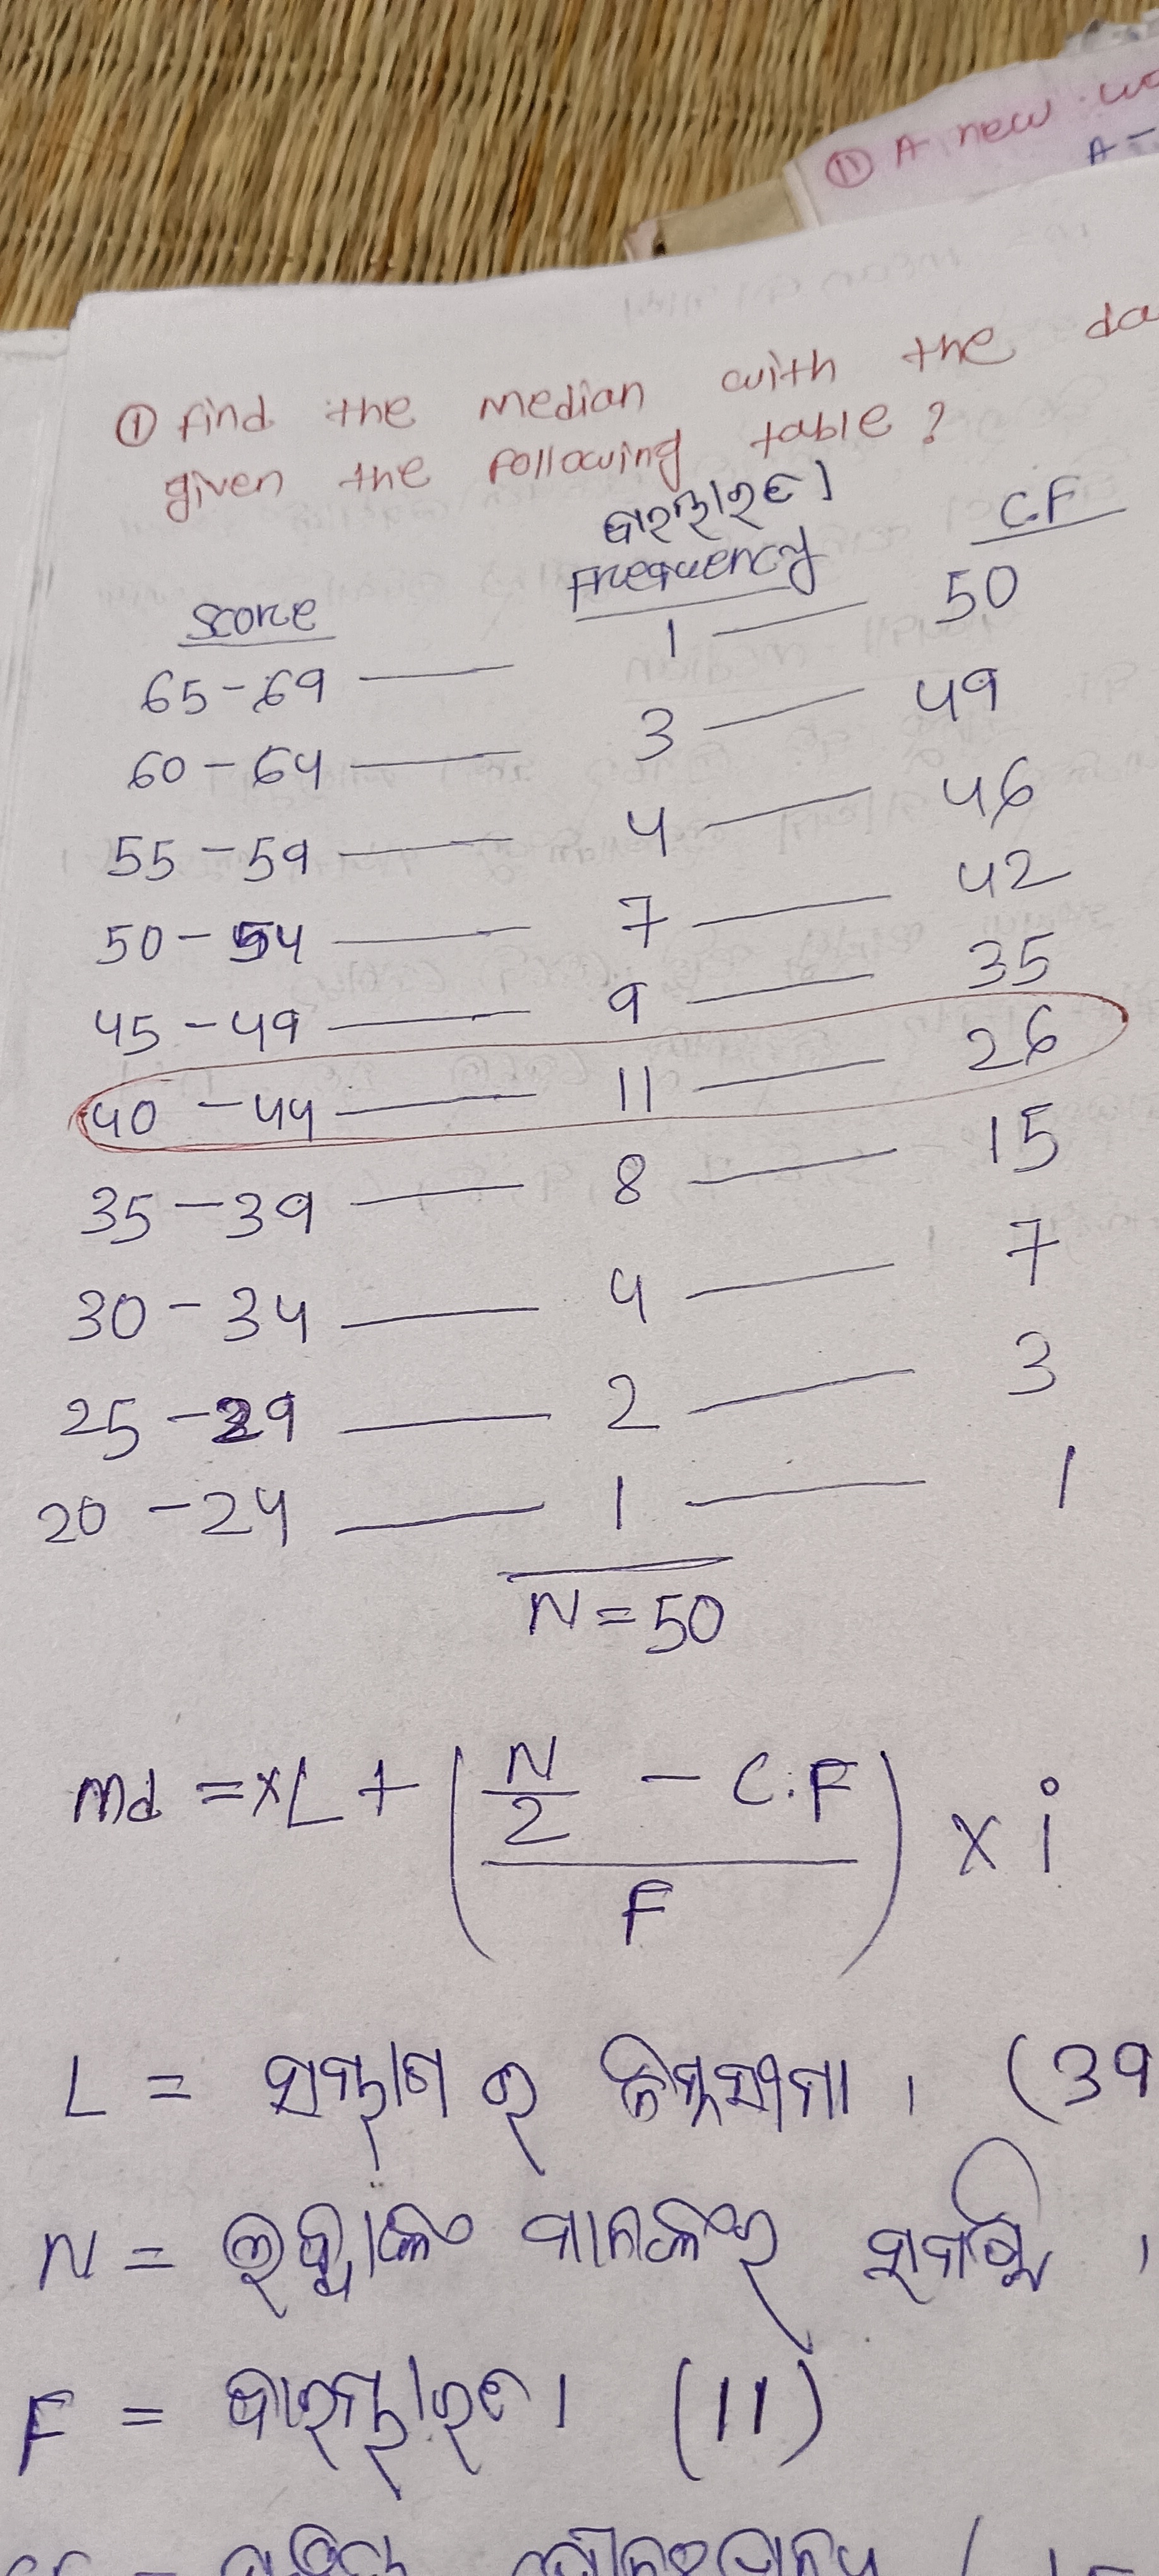 ⑪ A new
A -
① find the median with the
given the following table ?
ବାରମ୍ବାରତା
Score Frequency C.F
65-69 — 1 — 50
60-64 — 3 — 49
55-59 — 4 — 46
50-54 — 7 — 42
45-49 — 9 — 35
40-44 — 11 — 26
35-39 — 8 — 15
30-34 — 4 — 7
25-29 — 2 — 3
20-24 — 1 — 1
N = 50
Md = xL + (N/2 - C.F / F) x i
L = ର ନିମ୍ନସୀମା । (39
N =
F = ବାରମ୍ବାରତା (11)